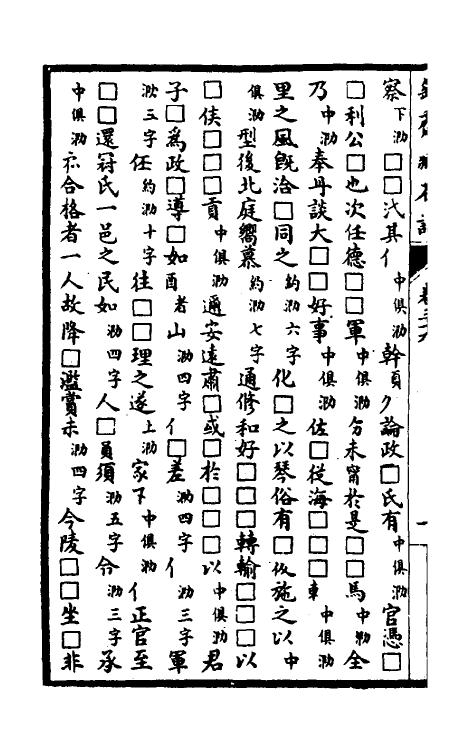 察下泐□□汱其亻中俱泐幹頁⺈論政□氏有中俱泐官憑□
□利公□也次任德□□軍中俱泐分未甯於是□□馬中泐全
乃中泐奉丹談大□□好事中俱泐佐□從海□□□中俱泐
里之風旣洽□同之約泐六字化□之以琴俗有□仮施之以中
俱泐型後北庭嚮慕約泐七字通修和好□□□轉輸□□□以
□侯□□□貢中俱泐邇安遠肅□或□於□□□以中俱泐君
子□爲政□導□如酉者山泐四字亻□差泐四字亻泐三字軍
泐三字任約泐十字往□□理之遂上泐家下中俱泐亻正官至
□□還冠氏一邑之民如泐四字人□員須泐五字令泐三字承
中俱泐示合格者一人故降□濫賞未泐四字今陵□□坐□非